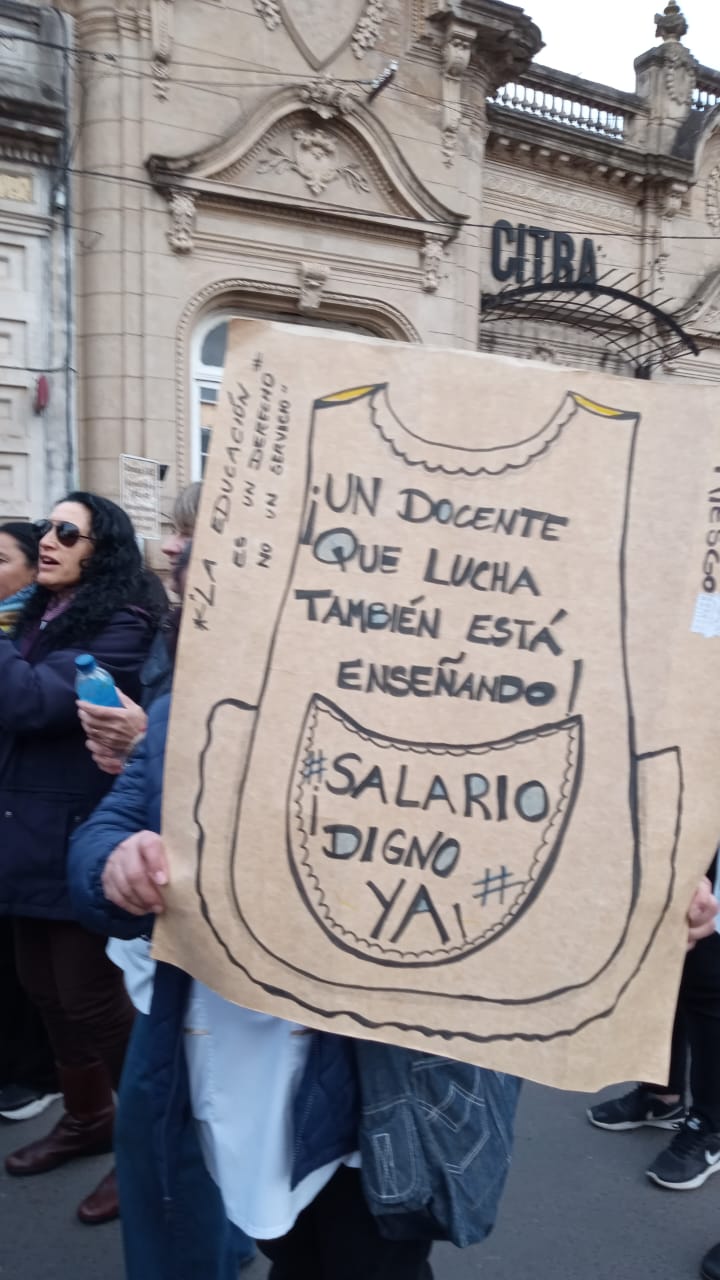 CITRA
#LA EDUCACIÓN
ES UN DERECHO #
NO UN SERVICIO"
¡UN DOCENTE
QUE LUCHA
TAMBIÉN ESTÁ
ENSEÑANDO!
#SALARIO
¡DIGNO
YA! #